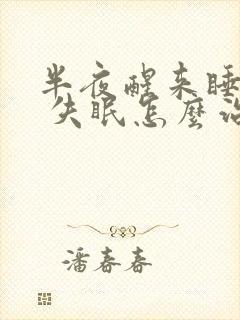 半夜醒来睡
失眠怎麼治
潘春春